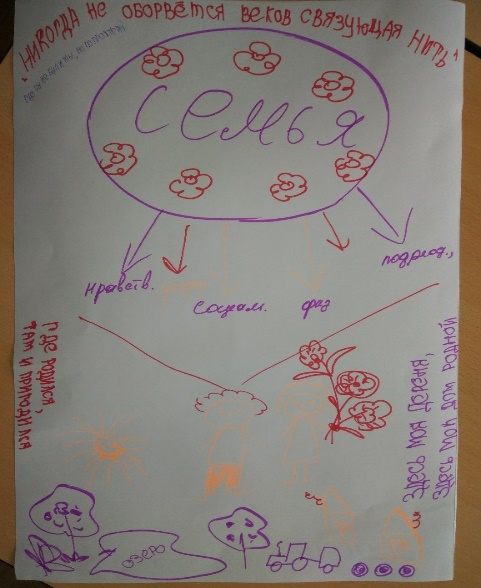 "НИКОГДА НЕ ОБОРВЁТСЯ ВЕКОВ СВЯЗУЮЩАЯ НИТЬ"
СЕМЬЯ
нравств.
социал.
физ
ГДЕ РОДИЛСЯ,
ТАМ И ПРИГОДИЛСЯ
ЗДЕСЬ МОЯ ДЕРЕВНЯ,
ЗДЕСЬ МОЙ ДОМ РОДНОЙ
ОЗЕРО